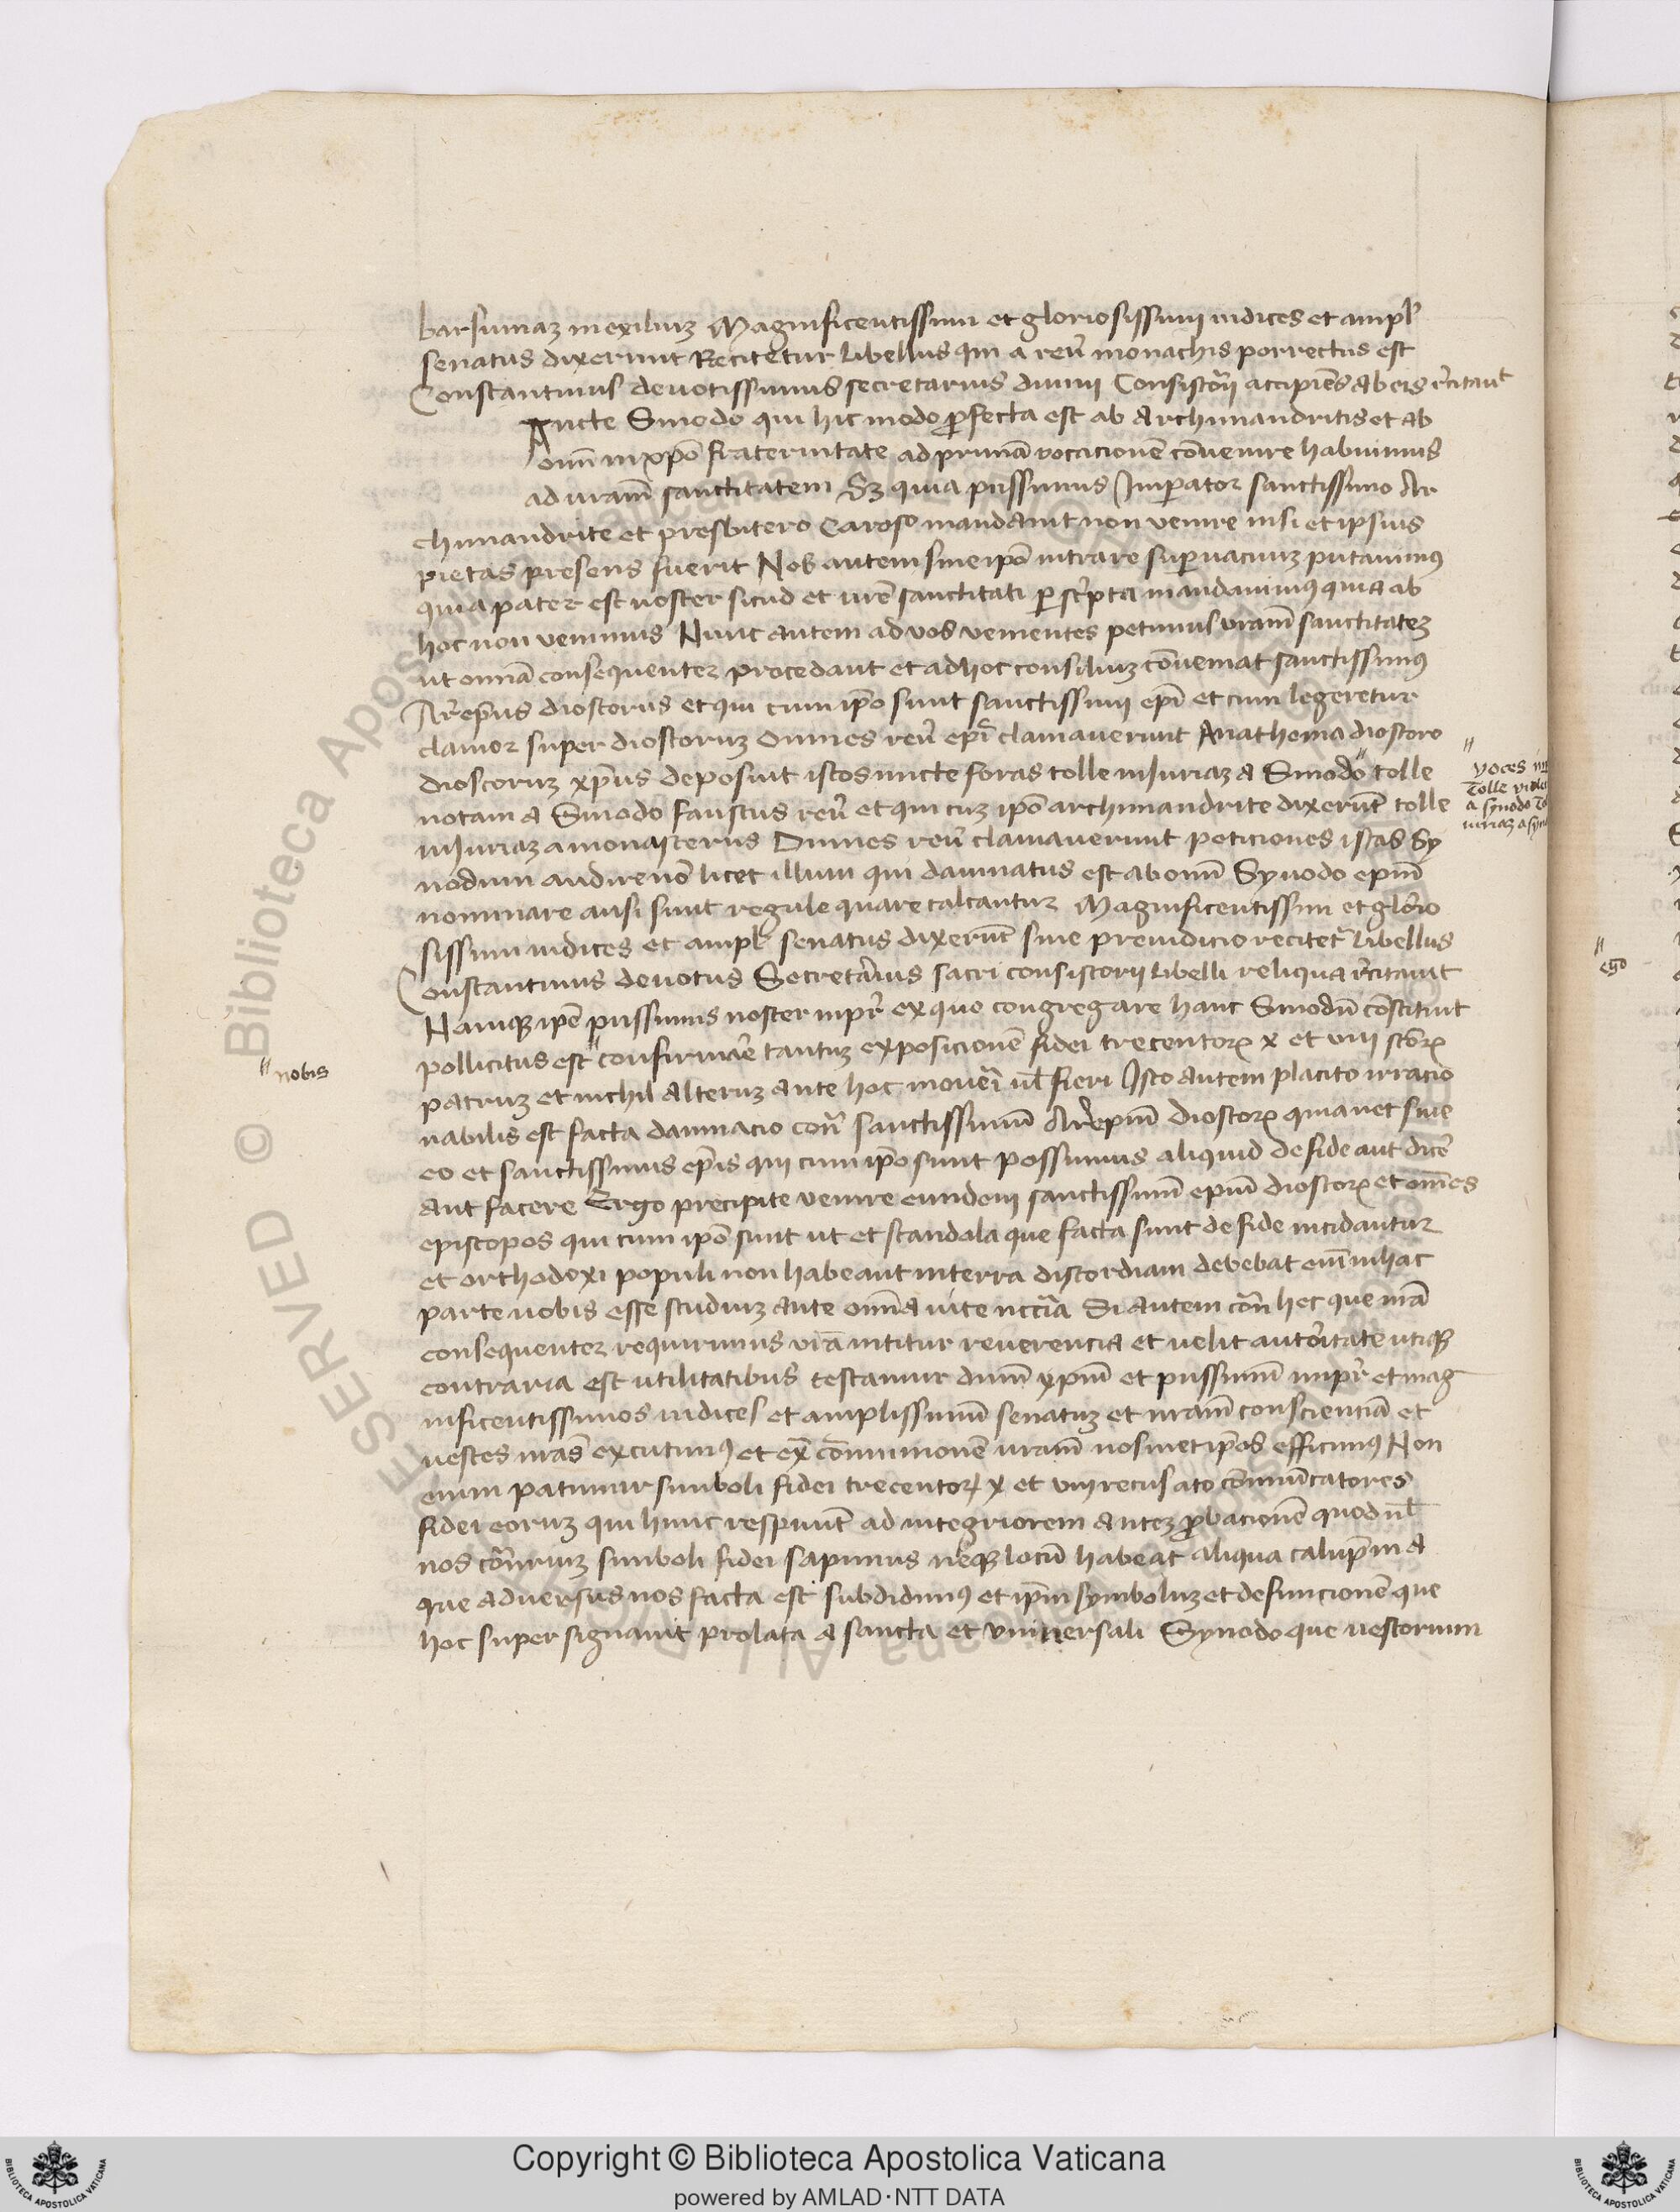 barsumaz in exiliuz Magnificentissimi et gloriosissimi iudices et ampl
senatus dixerunt Recitetur libellus qui a reuͬ monachis porrectus est
Constantinus deuotissimus secretarius diuini Consistorii accipiēs ab eis rēcitauit
Ancte Sinodo qui hic modo ꝓfecta est ab Archimandritis et ab
omī in xp̄o fraternitate ad primā vocacionē cōuenire habuimus
ad uram̄ sanctitatem Sz quia piissimus Imꝑator sanctissimo Ar
chimandrite et presbitero Caroso mandauit non venire nisi et ipsius
pietas presens fuerit Nos autem sine ip̄o intrare suꝑuacuuz putauimꝰ
quia pater est noster sicud et ur̄e sanctitati ꝑ scripta mandauimꝰ quia ab
hoc non venimus Nunc autem ad vos venientes petimus uram̄ sanctitatez
ut omnā consequenter procedant et ad hoc consiliuz cōueniat sanctissimꝰ
Ar̄ep̄us dioscorus et qui cum ip̄o sunt sanctissimi ep̄i et cum legeretur
clamor super dioscoruz Omnes reuͬ ep̄i clamauerunt Anathema dioscoro
dioscoruz xp̄us deposuit istos mitte foras tolle iniuriaz a Sinodo" tolle
notam a Sinodo faustus reuͬ et qui cuz ip̄o archimandrite dixerūt tolle
iniuriaz a monasteriis Omnes reuͬ clamauerunt peticiones istas Sy
nodum audire nō licet illum qui damnatus est ab omī Synodo ep̄m
nominare ausi sunt regule quare calcantur Magnificentissimi et glorio
sissimi iudices et ampl senatus dixerūt sine preiudicio recitet̄ libellus
Constantinus deuotus Secretarius sacri consistorii libelli reliqua rēcitauit
Namqȝ ip̄e piissimus noster impr̄ ex quo congregare hanc Sinodū cōstituit
pollicitus est" confirmare tantuz exposicionē fidei trecentorꝝ x et viii sctorꝝ
patruz et nichil alteruz ante hoc mouēri ul fieri Isto autem placito irracio
nabilis est facta damnacio conͣ sanctissimū Ar̄ep̄m dioscorꝝ quia nec sine
eo et sanctissimis ep̄is qui cum ip̄o sunt possumus aliquid de fide aut dic̄e
aut facere Ergo precipite venire eundem sanctissimū ep̄m dioscorꝝ et om̄es
episcopos qui cum ip̄o sunt ut et scandala que facta sunt de fide incidantur
et orthodoxi populi non habeant in terra discordiam debebat em̄ in hac
parte uobis esse studiuz ante omīa uite nccīa Si autem conͣ hec que nr̄a
consequenter requirimus ur̄a intitur reuerencia et uelit autoritate utiqȝ
contraria est utilitatibus testamur dnm̄ xp̄m et piissimū impr̄ et mag
nificentissimos iudices et amplissimū senatuz et uram̄ conscienciā et
uestes nras̄ excutimꝰ et ex̄ cōmunionē uram̄ nosmet ip̄os efficimꝰ Non
enim patimur simboli fidei trecentorꝝ x et viii recusato cōmūicatores
fidei eoruz qui hunc respuunt ad integriorem autez ꝓbacionē quod nl
nos conͣriuz simboli fidei sapimus neqȝ locū habeat aliqua calūpnia
que aduersus nos facta est subdidimꝰ et ip̄m symboluz et definicionē que
hoc super signauit prolata a sancta et vniuersali Synodo que nestorium
" nobis
" voces
Tolle
a synodo
iuriaz a
"
ego
Copyright © Biblioteca Apostolica Vaticana
powered by AMLAD·NTT DATA